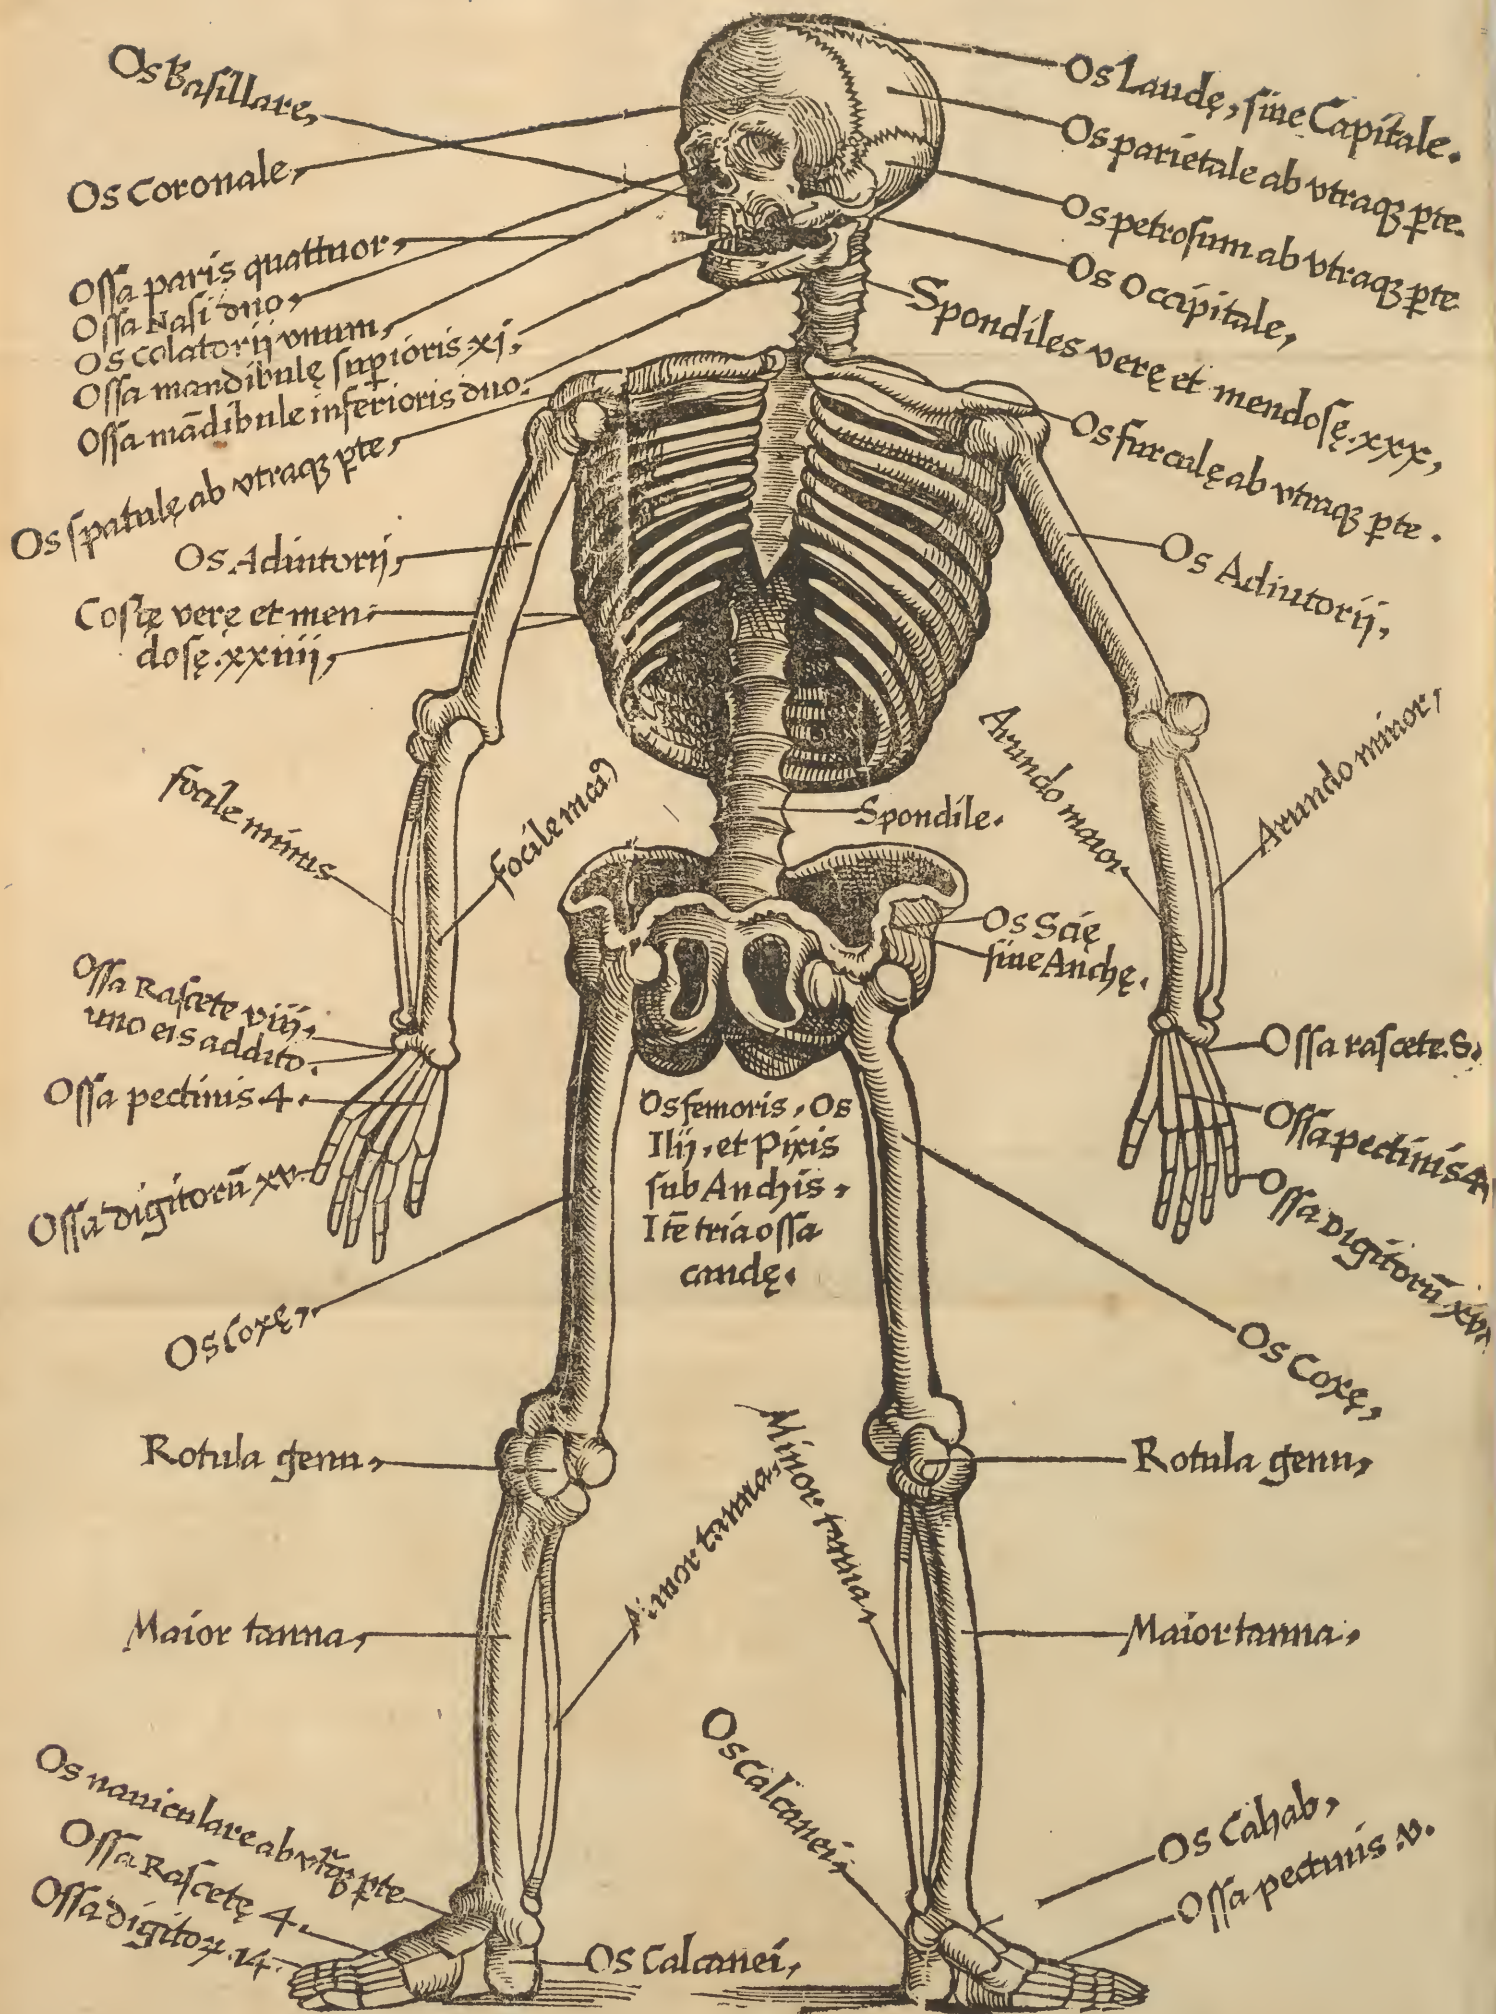 Os Basillare,
Os Coronale,
Ossa paris quattuor,
Ossa Nasi duo,
Os colatorij vnum,
Ossa mandibulę supioris.xj,
Ossa mādibule inferioris duo.
Os spatulę ab vtraqꝫ pte,
Os Adiutorij,
Costę verę et men-
dosę.xxiiij,
focile minus
focile mcaꝰ
Ossa Rascete viij.
uno eis addito.
Ossa pectinis.4.
Ossa digitorū xv.
Os Coxę,
Rotula genu,
Maior tanna,
Minor tanna,
Os naviculare ab vtꝗꝫ pte
Ossa Rascetę 4.
Ossa digitoꝝ.14.
Os Calcanei,
Os Laudę, siue Capitale.
Os parietale ab vtraqꝫ pte.
Os petrosum ab vtraqꝫ pte
Os Occipitale,
Spondiles verę et mendosę.xxx,
Os furculę ab vtraqꝫ pte.
Os Adiutorij,
Arundo maior.
Arundo minor,
Spondile.
Os Scię
siue Anchę.
Ossa rascete.8.
Ossa pectinis 4
Ossa Digitorū xv.
Os femoris, Os
Ilij, et Pixis
sub Anchis,
Itē tria ossa
caudę.
Os Coxę,
Rotula genu,
Minor tanna,
Maior tanna.
Os Calcanei,
Os Cahab,
Ossa pectinis .v.